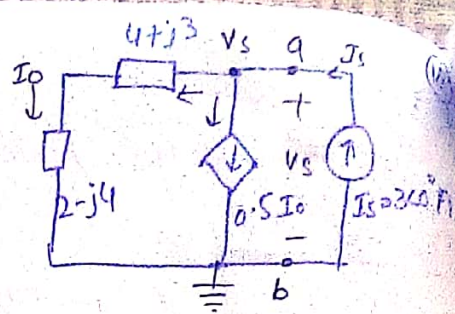 4+j3
Vs
a
Is
Io
+
Vs
2-j4
0.5Io
Is=3∠0°A
-
b